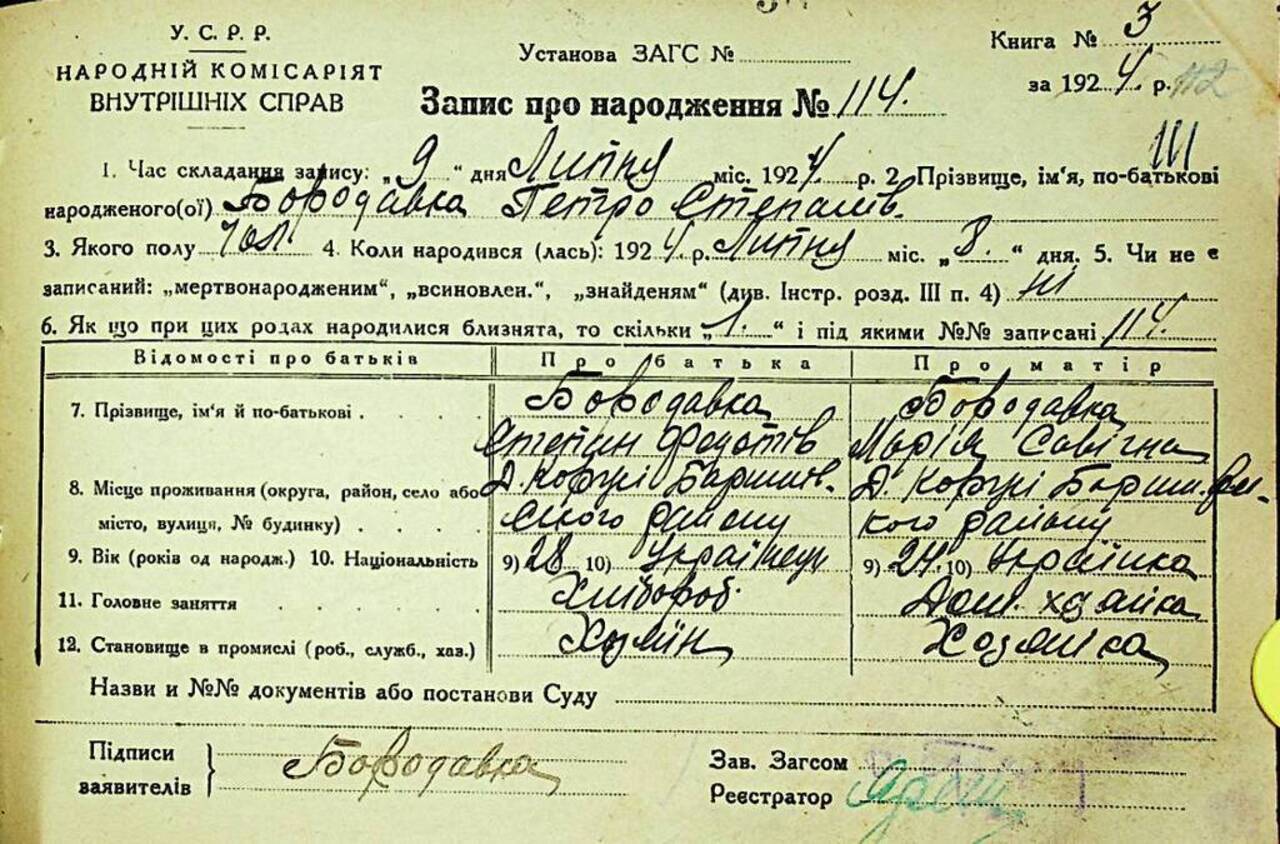 У. С. Р. Р.
НАРОДНІЙ КОМІСАРІЯТ
ВНУТРІШНІХ СПРАВ
Установа ЗАГС №
Книга № 3
за 1924 р. 112
Запис про народження № 114.
III
1. Час складання запису: „9“ дня Липня міс. 1924 р. 2. Прізвище, ім'я, по-батькові
народженого(ої) Бородавка Петро Степанів.
3. Якого полу чол. 4. Коли народився (лась): 1924 р. Липня міс. „8.“ дня. 5. Чи не є
записаний: „мертвонародженим“, „всиновлен.“, „знайденям“ (див. Інстр. розд. III п. 4) Ні
6. Як що при цих родах народилися близнята, то скільки „1.“ і під якими №№ записані 114.
Відомості про батьків Про батька Про матір
7. Прізвище, ім'я й по-батькові . . . . Бородавка Бородавка
Степан Федотів Марія Савічна
8. Місце проживання (округа, район, село або Д. Коржі Баришів- Д. Коржі Баришів-
місто, вулиця, № будинку) . . . . ського району кого району
9. Вік (років од народж.) 10. Національність 9) 28 10) Українець 9) 24. 10) Українка
11. Головне заняття . . . . . Хлібороб. Дом. хазяйка
12. Становище в промислі (роб., служб., хаз.) Хозяїн Хозяйка
Назви и №№ документів або постанови Суду
Підписи
заявителів
Бородавка
Зав. Загсом
Реєстратор